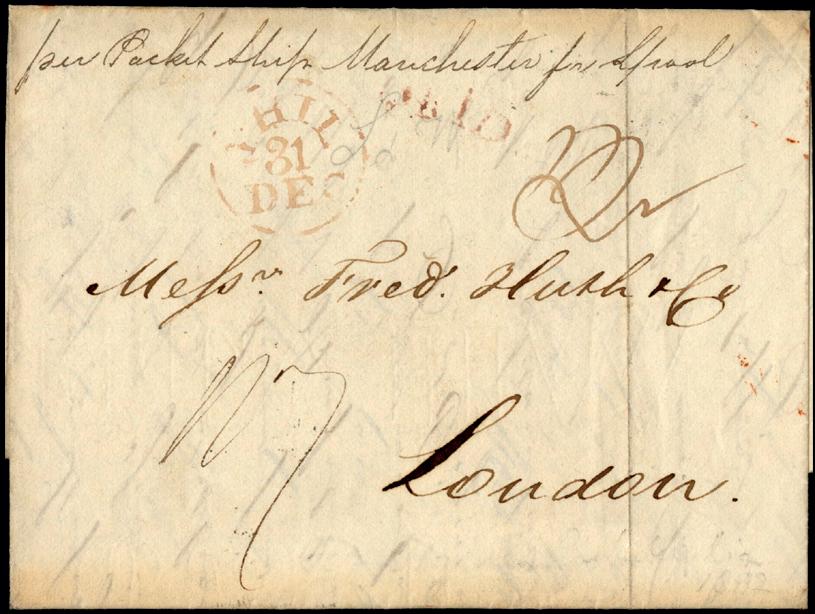 per Packet Ship Manchester fr Lpool
PAID
PHIL
31
DEC
Messrs. Fred. Huth & Co
London.